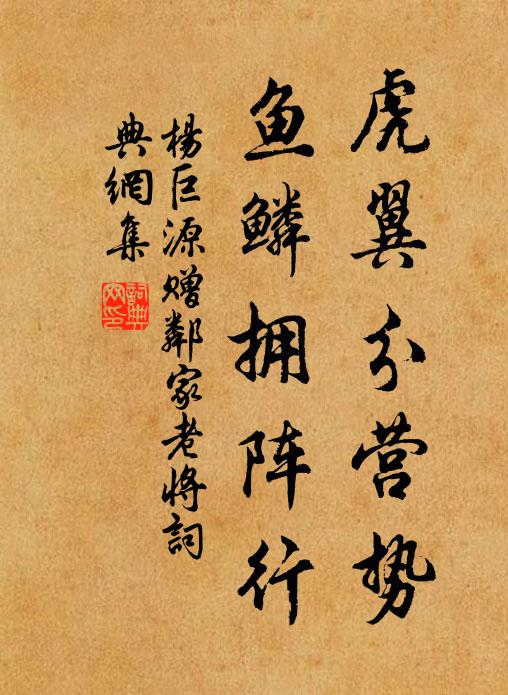 虎翼分营势
鱼鳞拥阵行
楊巨源赠鄰家老将詞
典網集
詞典
网印